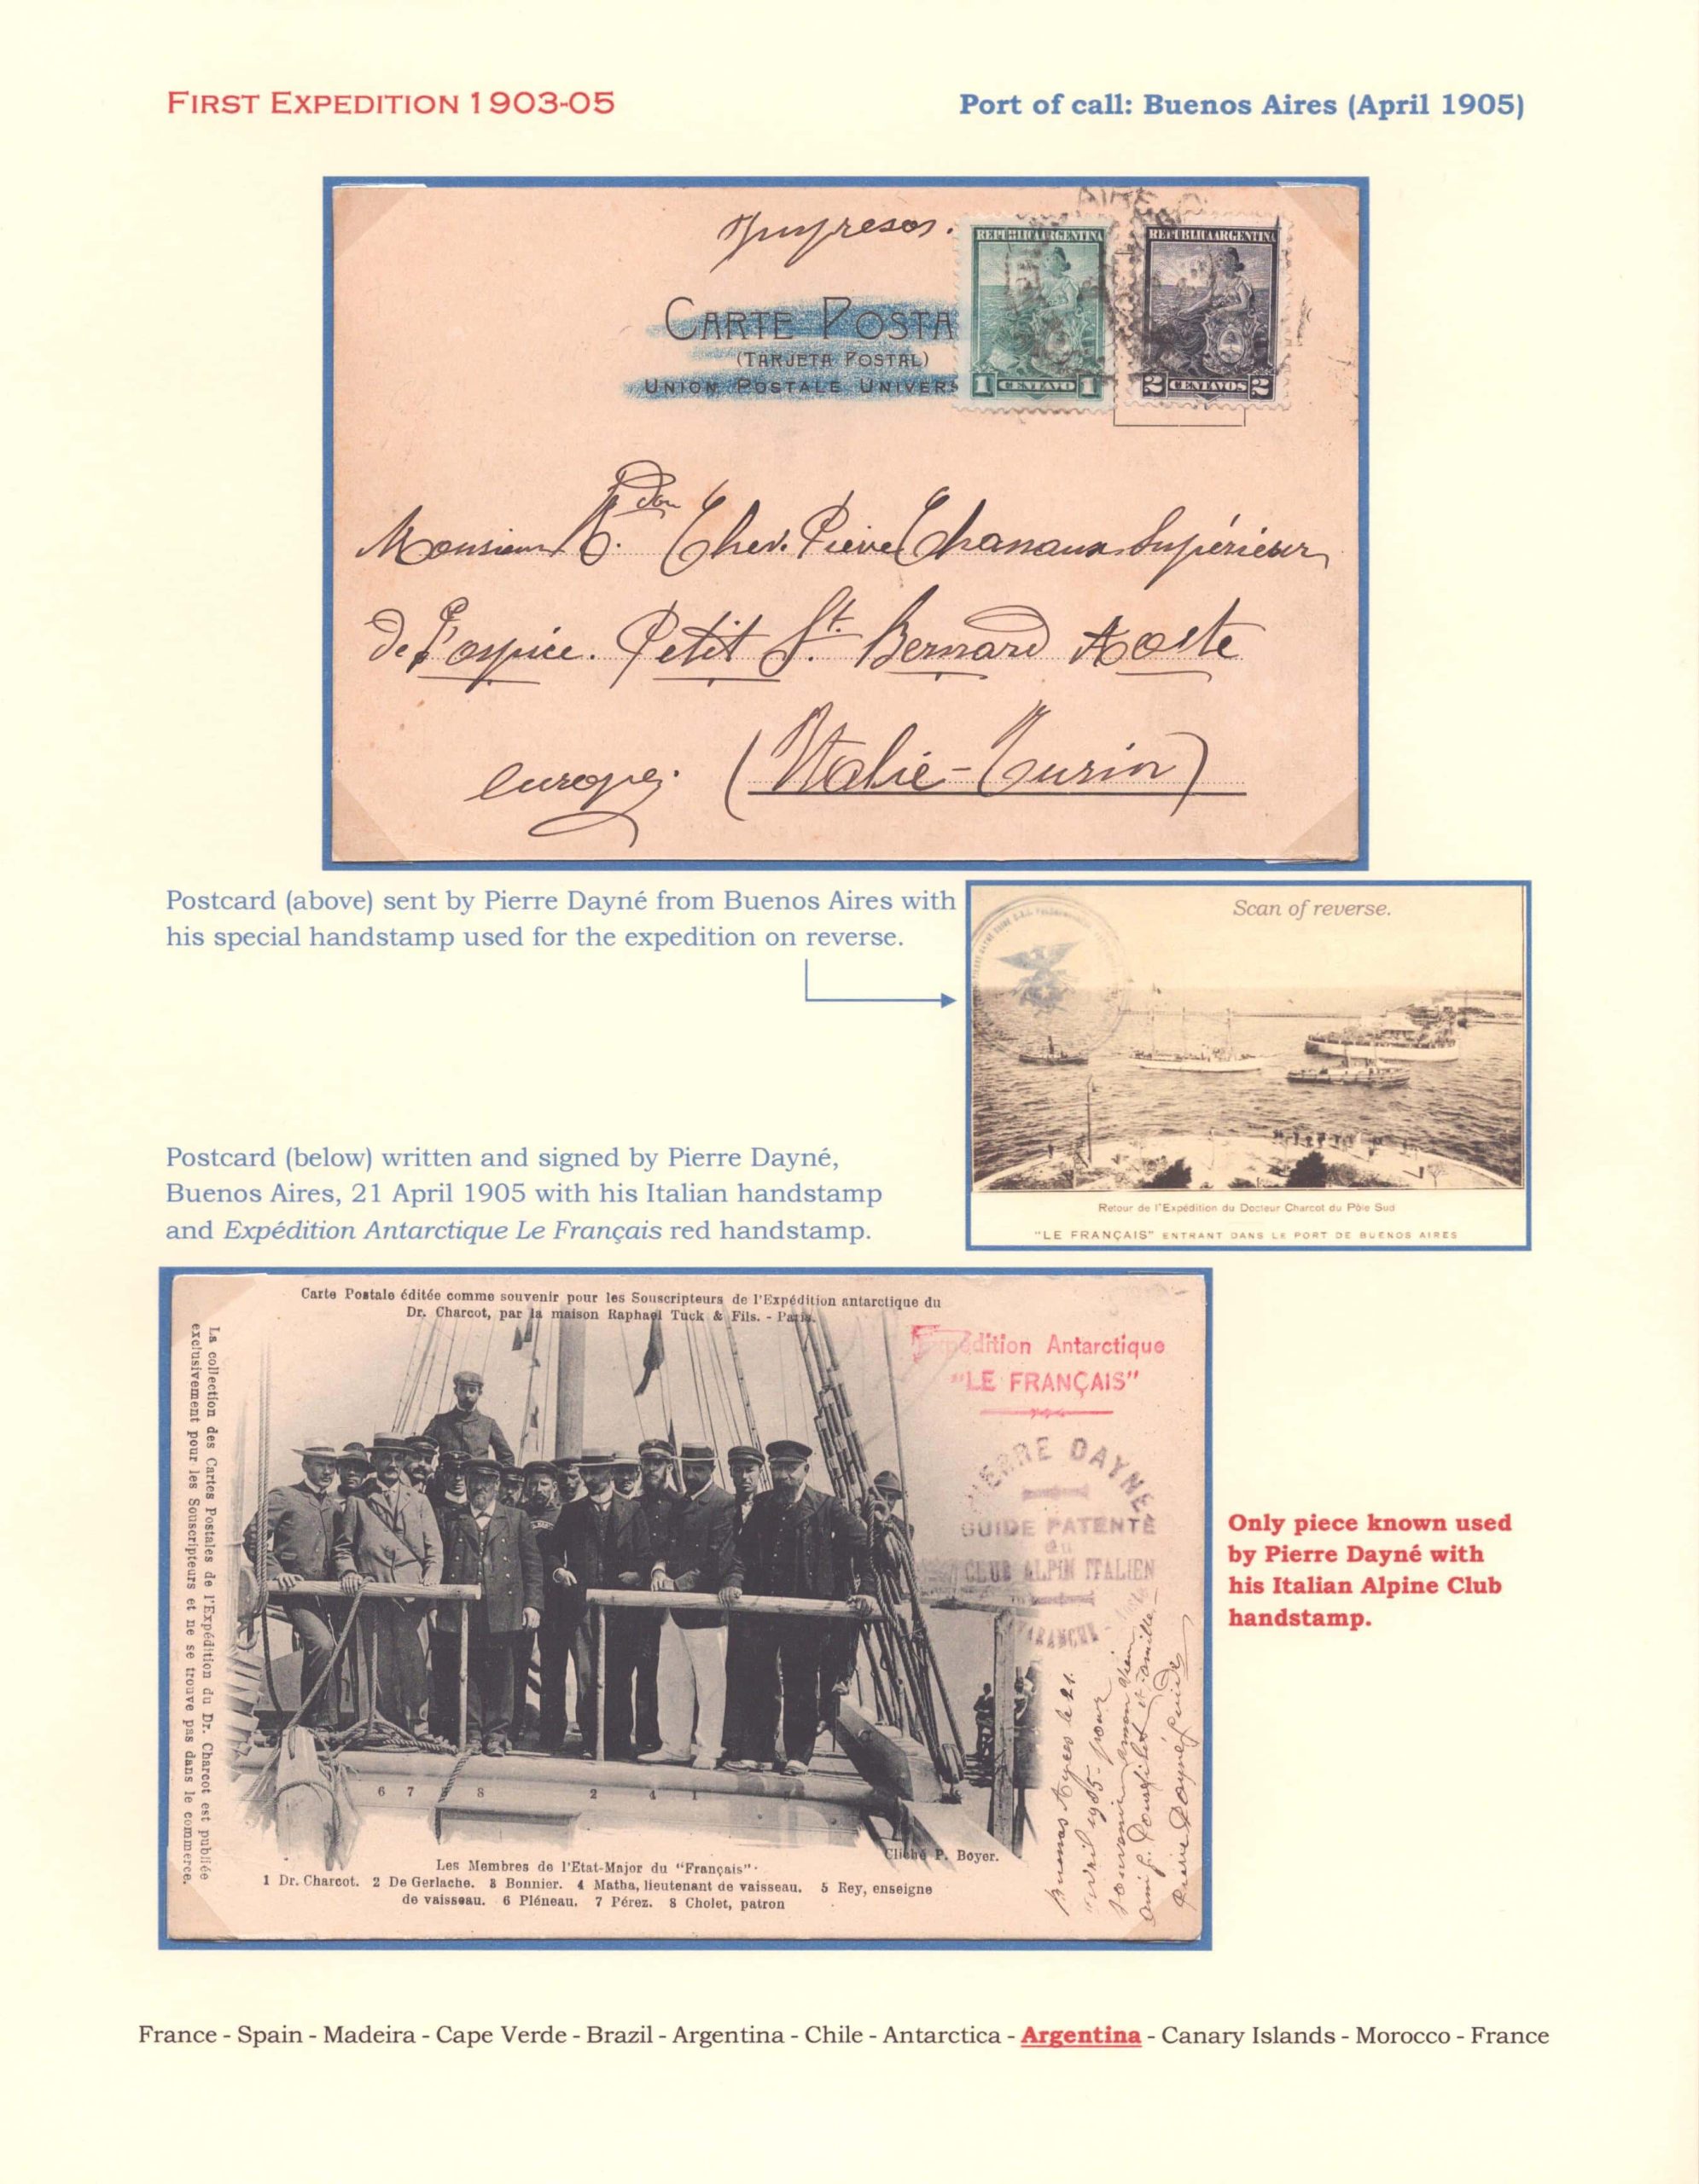 FIRST EXPEDITION 1903-05
Port of call: Buenos Aires (April 1905)
Impresos.
REPUBLICA ARGENTINA
REPUBLICA ARGENTINA
CARTE POSTA
(TARJETA POSTAL)
UNION POSTALE UNIVERS
1 CENTAVO 1
2 CENTAVOS 2
Monsieur Chev. Pierre Chanoux Supérieur
de l'ospice. Petit St. Bernard Aoste
europe. (Italie-Turin)
Postcard (above) sent by Pierre Dayné from Buenos Aires with
his special handstamp used for the expedition on reverse.
Scan of reverse.
Retour de l'Expédition du Docteur Charcot du Pôle Sud
"LE FRANÇAIS" ENTRANT DANS LE PORT DE BUENOS AIRES
Postcard (below) written and signed by Pierre Dayné,
Buenos Aires, 21 April 1905 with his Italian handstamp
and Expédition Antarctique Le Français red handstamp.
Carte Postale éditée comme souvenir pour les Souscripteurs de l'Expédition antarctique du
Dr. Charcot, par la maison Raphael Tuck & Fils. - Paris.
La collection des Cartes Postales de l'Expédition du Dr. Charcot est publiée
exclusivement pour les Souscripteurs et ne se trouve pas dans le commerce.
Expédition Antarctique
"LE FRANÇAIS"
PIERRE DAYNE
GUIDE PATENTÉ
du
CLUB ALPIN ITALIEN
Buenos Ayres le 21.
avril 1905. pour
souvenir
famille
Pierre Dayné guide
6 7 8 2 4 1
Cliché P. Boyer.
Les Membres de l'Etat-Major du "Français".
1 Dr. Charcot. 2 De Gerlache. 3 Bonnier. 4 Matha, lieutenant de vaisseau. 5 Rey, enseigne
de vaisseau. 6 Pléneau. 7 Pérez. 8 Cholet, patron
Only piece known used
by Pierre Dayné with
his Italian Alpine Club
handstamp.
France - Spain - Madeira - Cape Verde - Brazil - Argentina - Chile - Antarctica - Argentina - Canary Islands - Morocco - France